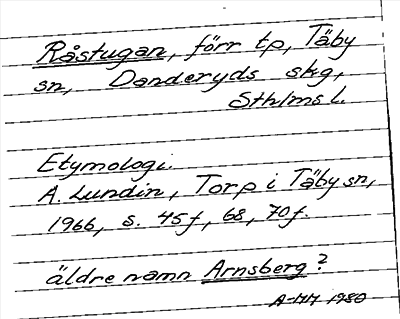 Råstugan, förr tp, Täby
sn, Danderyds skg,
Sthlms l.
Etymologi.
A. Lundin, Torp i Täby sn,
1966, s. 45f, 68, 70f.
äldre namn Arnsberg?
A-MM 1980